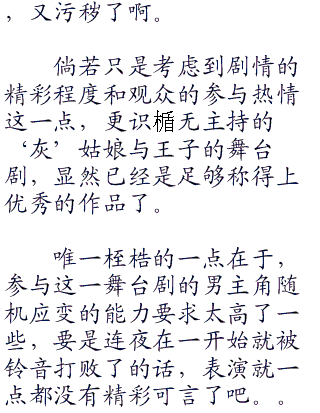 ，又污秽了啊。
倘若只是考虑到剧情的
精彩程度和观众的参与热情
这一点，更识楯无主持的
‘灰’姑娘与王子的舞台
剧，显然已经是足够称得上
优秀的作品了。
唯一桎梏的一点在于，
参与这一舞台剧的男主角随
机应变的能力要求太高了一
些，要是连夜在一开始就被
铃音打败了的话，表演就一
点都没有精彩可言了吧。。